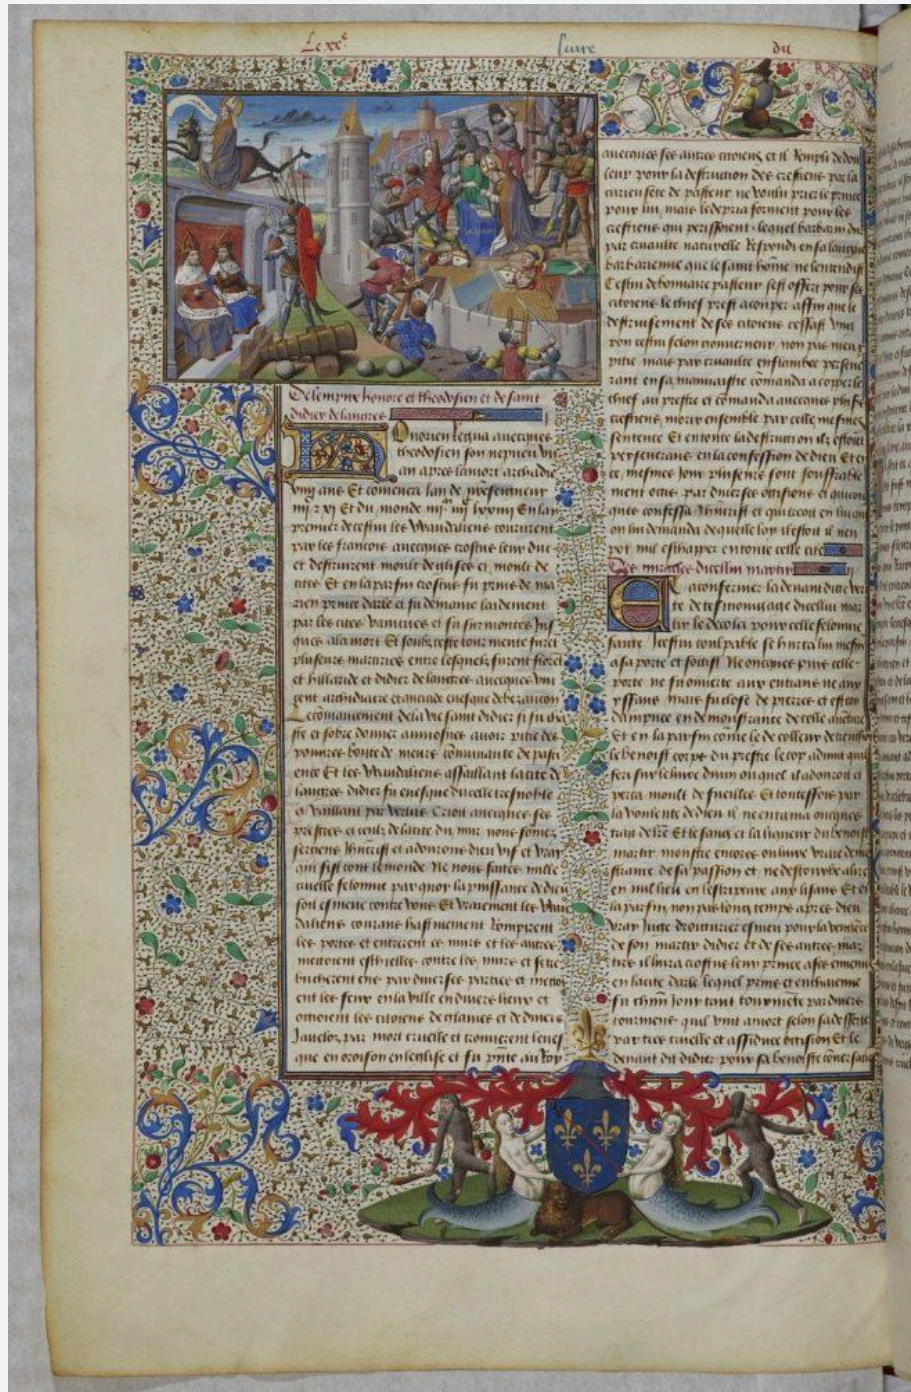 Le xx.e liure du
De lempire honore et theodosien et de saint
didier de langres
Onorien regna auecques
theodosien son nepueu vn
an apres la mort archadie
viii ans Et comenca lan de nreseigneur
Et du monde En lan
premier de cestui les Wandaliens coururent
par les francois auecques crostus leur duc
et destruirent moult deglises et moult de
cites Et en la parfin crostus fu prins de ma
rien prince darle et fu demaine laidement
par les cites vaincues et fu surmontes jus
ques a la mort Et soubz ceste tourmente furet
pluseurs martires entre lesquelz furent floret
et hillaride et didier de langres auecques vin
cent archidiacre et antide euesque de besancon
Le comancement de la vie saint didier si fu cha
ste et sobre donner aumosnes auoir pitie des
poures bonte de meurs continuance de paci
ence Et les Wandaliens assaillant la cite de
langres didier fu euesque dicelle tresnoble
et vaillant par vertus Crioit auecques ses
prestres et ceulz de la cite du mur nous somes
sergens jhucrist et adorons dieu vif et vray
qui fist tout le monde Ne nous faites mille
cruelle felonnie par quoy la puissance de dieu
soit esmeue contre vous Et vraiement les Wan
daliens courans hastiuement rompirent
les portes et entrerent es murs et les autres
mettoient eschielles contre les murs et se tre
bucherent ens par diuerses parties et mettoi
ent les feux en la ville en diuers lieux et
occioient les citoiens de glaiues et de diuers
Jaueloz par mort cruelle et trouuerent leues
que en oroison en leglise et fu prins au roy
auecques ses autres citoiens et il rempli de dou
leur pour la destruction des crestiens par la
curieusete de pasteur ne voulu prier le prince
pour lui mais le depria forment pour les
crestiens qui perissoient lequel barbarin dur
par cruaulte naturelle Respondi en sa langue
barbarienne que le saint home ne lentendist
Cestui debonnaire pasteur sest offert pour ses
citoiens le chief prest a coper affin que le
destruisement de ses citoiens cessast vng
pou cestui felon gouuerneur non pas meu p
pitie mais par cruaulte enflambee perseue
rant en sa mauuaistie comanda a coper le
chief au prestre et comanda auecques pluse
crestiens morir ensemble par celle mesmes
sentence Et en toute la destruction ilz estoient
perseuerans en la confession de dieu Et en
ce mesmes jour pluseurs sont
ment occis par diuerses occisions et quicon
ques confessa jhucrist et qui creoit en lui quat
on lui demanda de quelle loy il estoit il nen
pot nul eschapper en toute celle cite
Des miracles dicellui martir
A confermer la deuant ditte ver
te de tesmoingage dicellui mar
tir le decola pour celle felonnie
faire Icestui coulpable se hurta lui mesmes
a sa porte et Ne oncques puis celle
porte ne fu ouuerte aux entrans ne aux
yssans mais fu close de pierres et est con
dampnee en demonstrance de celle auenture
Et en la parfin come le decolleur detrencha
le benoist corps du prestre le cop aduint quil
feri sur le liure diuin ou quel il adouroit et
perca moult de fueilles Et toutesfois par
la voulente de dieu il ne entama oncques
rien de Et le sanc et la liqueur du benoist
martir monstre encores ou liure vraie demo
strance de sa passion et ne destourbe a lire
en mil lieu en lescripture aux lisans Et en
la parfin non pas long temps apres dieu
vray juge droiturier esmeu pour la vengence
de son martir didier et de ses autres mar
tirs il liura crostus leur prince a ses ennemis
en la cite darle lequel prins et enchaienne
fu chun jour tant tourmente par diuers
tourmens quil vint a mort selon sa desserte
par tres cruelle et assidue occision Et le
deuant dit didier pour sa benoiste conuersacio